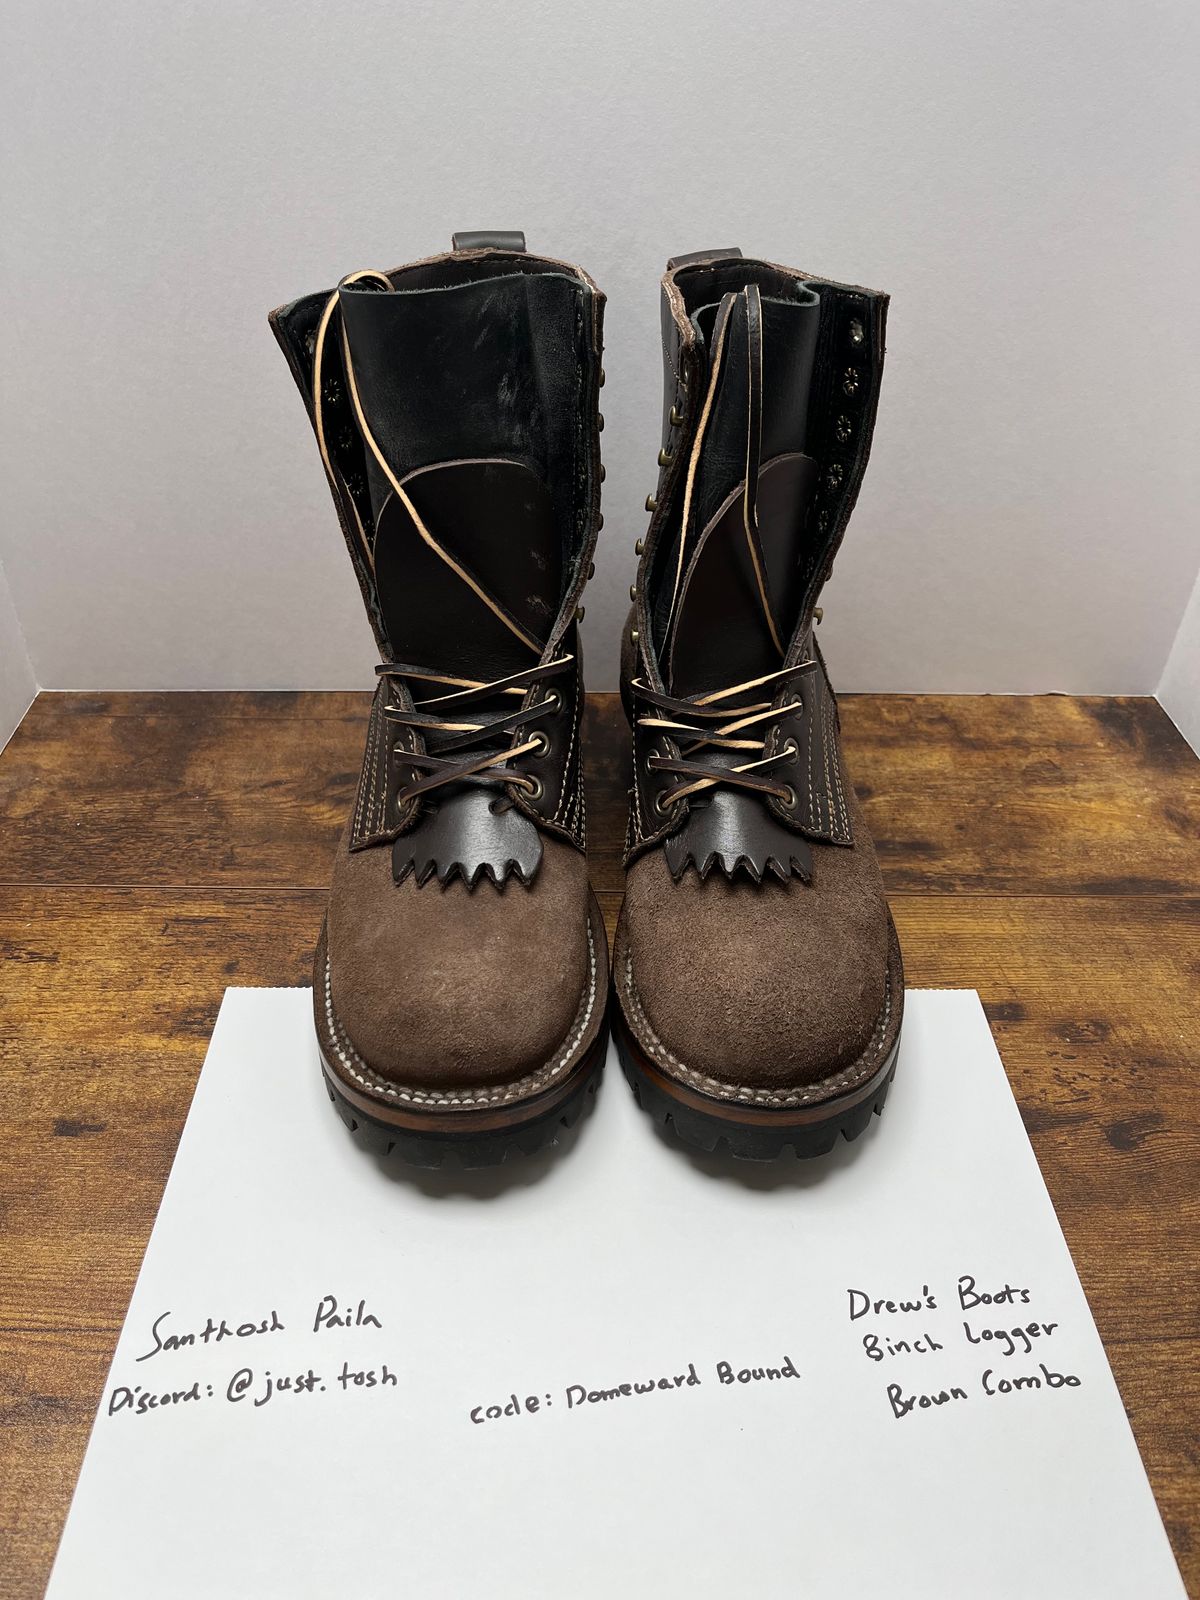 Santhosh Paila
Discord: @just.tosh
code: Domeward Bound
Drew's Boots
8inch Logger
Brown Combo